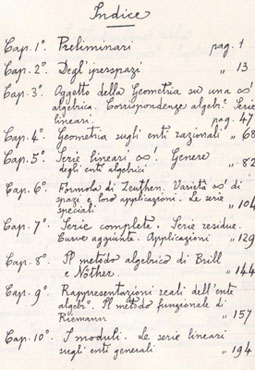 Indice
Cap. 1°. Preliminari pag. 1
Cap. 2°. Degl'iperspazi " 13
Cap. 3°. Oggetto della Geometria su una ∞¹
algebrica. Corrispondenze algebr. Serie
lineari. pag. 47
Cap. 4°. Geometria sugli enti razionali " 68
Cap. 5°. Serie lineari ∞¹. Genere
degli enti algebrici " 82
Cap. 6°. Formola di Zeuthen. Varietà ∞¹ di
spazi e loro applicazioni. Le serie
speciali " 104
Cap. 7°. Serie complete. Serie residue.
Curve aggiunte. Applicazioni " 129
Cap. 8°. Il metodo algebrico di Brill
e Nöther " 144
Cap. 9°. Rappresentazioni reali dell'ente
algebr°. Il metodo funzionale di
Riemann " 157
Cap. 10°. I moduli. Le serie lineari
sugli enti generali " 194